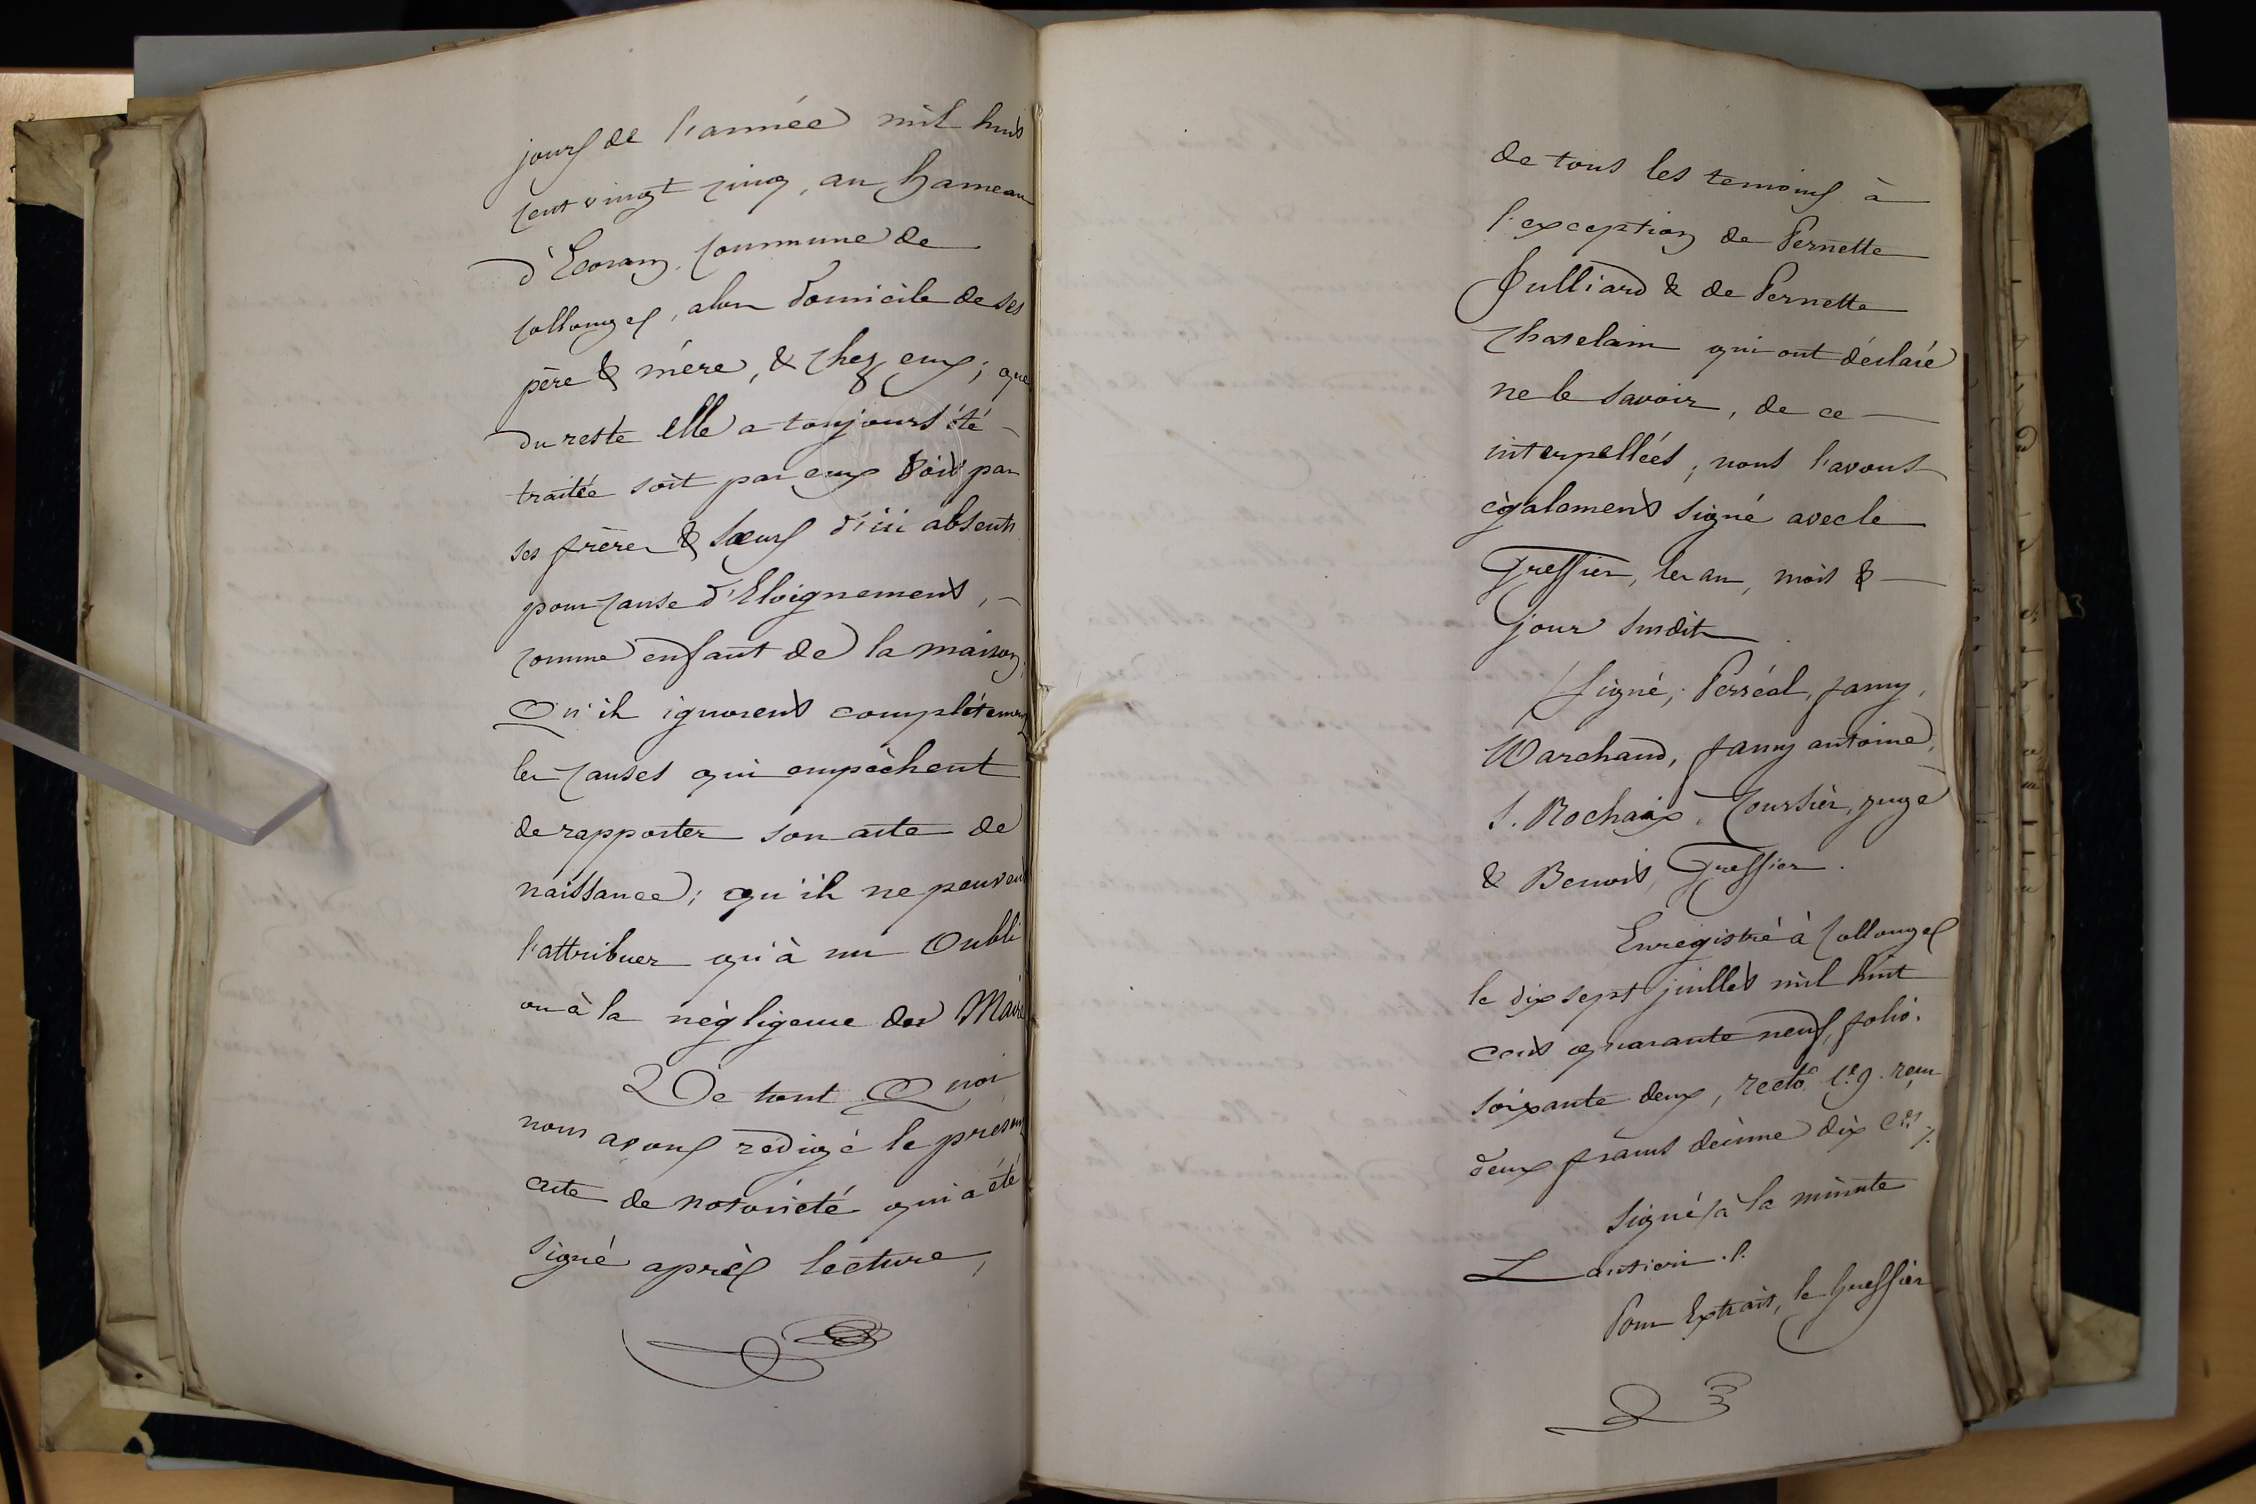 jours de l'année mil huit
cent vingt cinq, au hameau
d'Ecorans, commune de
Collonges, alors domicile de ses
père & mère, & chez eux; que
du reste elle a toujours été
traitée soit par eux soit par
ses frères & sœurs d'ici absents
pour cause d'Eloignement,
comme enfant de la maison;
Qu'ils ignorent complètement
les causes qui empêchent
de rapporter son acte de
naissance; qu'ils ne peuvent
l'attribuer qu'à un Oubli
ou à la négligence des Maires
De tout Quoi
nous avons rédigé le présent
acte de notoriété qui a été
signé après lecture,
de tous les temoins à
l'exception de Pernette
Julliard & de Pernette
Chatelain qui ont déclaré
ne le savoir, de ce
interpellées, nous l'avons
également signé avec le
Greffier, les an, mois &
jour susdits
Signé; Perréal, famy,
Marchand, famy antoine,
J. Rochaix, Coursier, juge
& Benoit, Greffier.
Enregistré à Collonges
le dix sept juillet mil huit
cent quarante neuf, folio.
soixante deux, recto Ce 9. reçu
deux francs décime dix ces
Signé à la minute
Pour Extrait, le Greffier